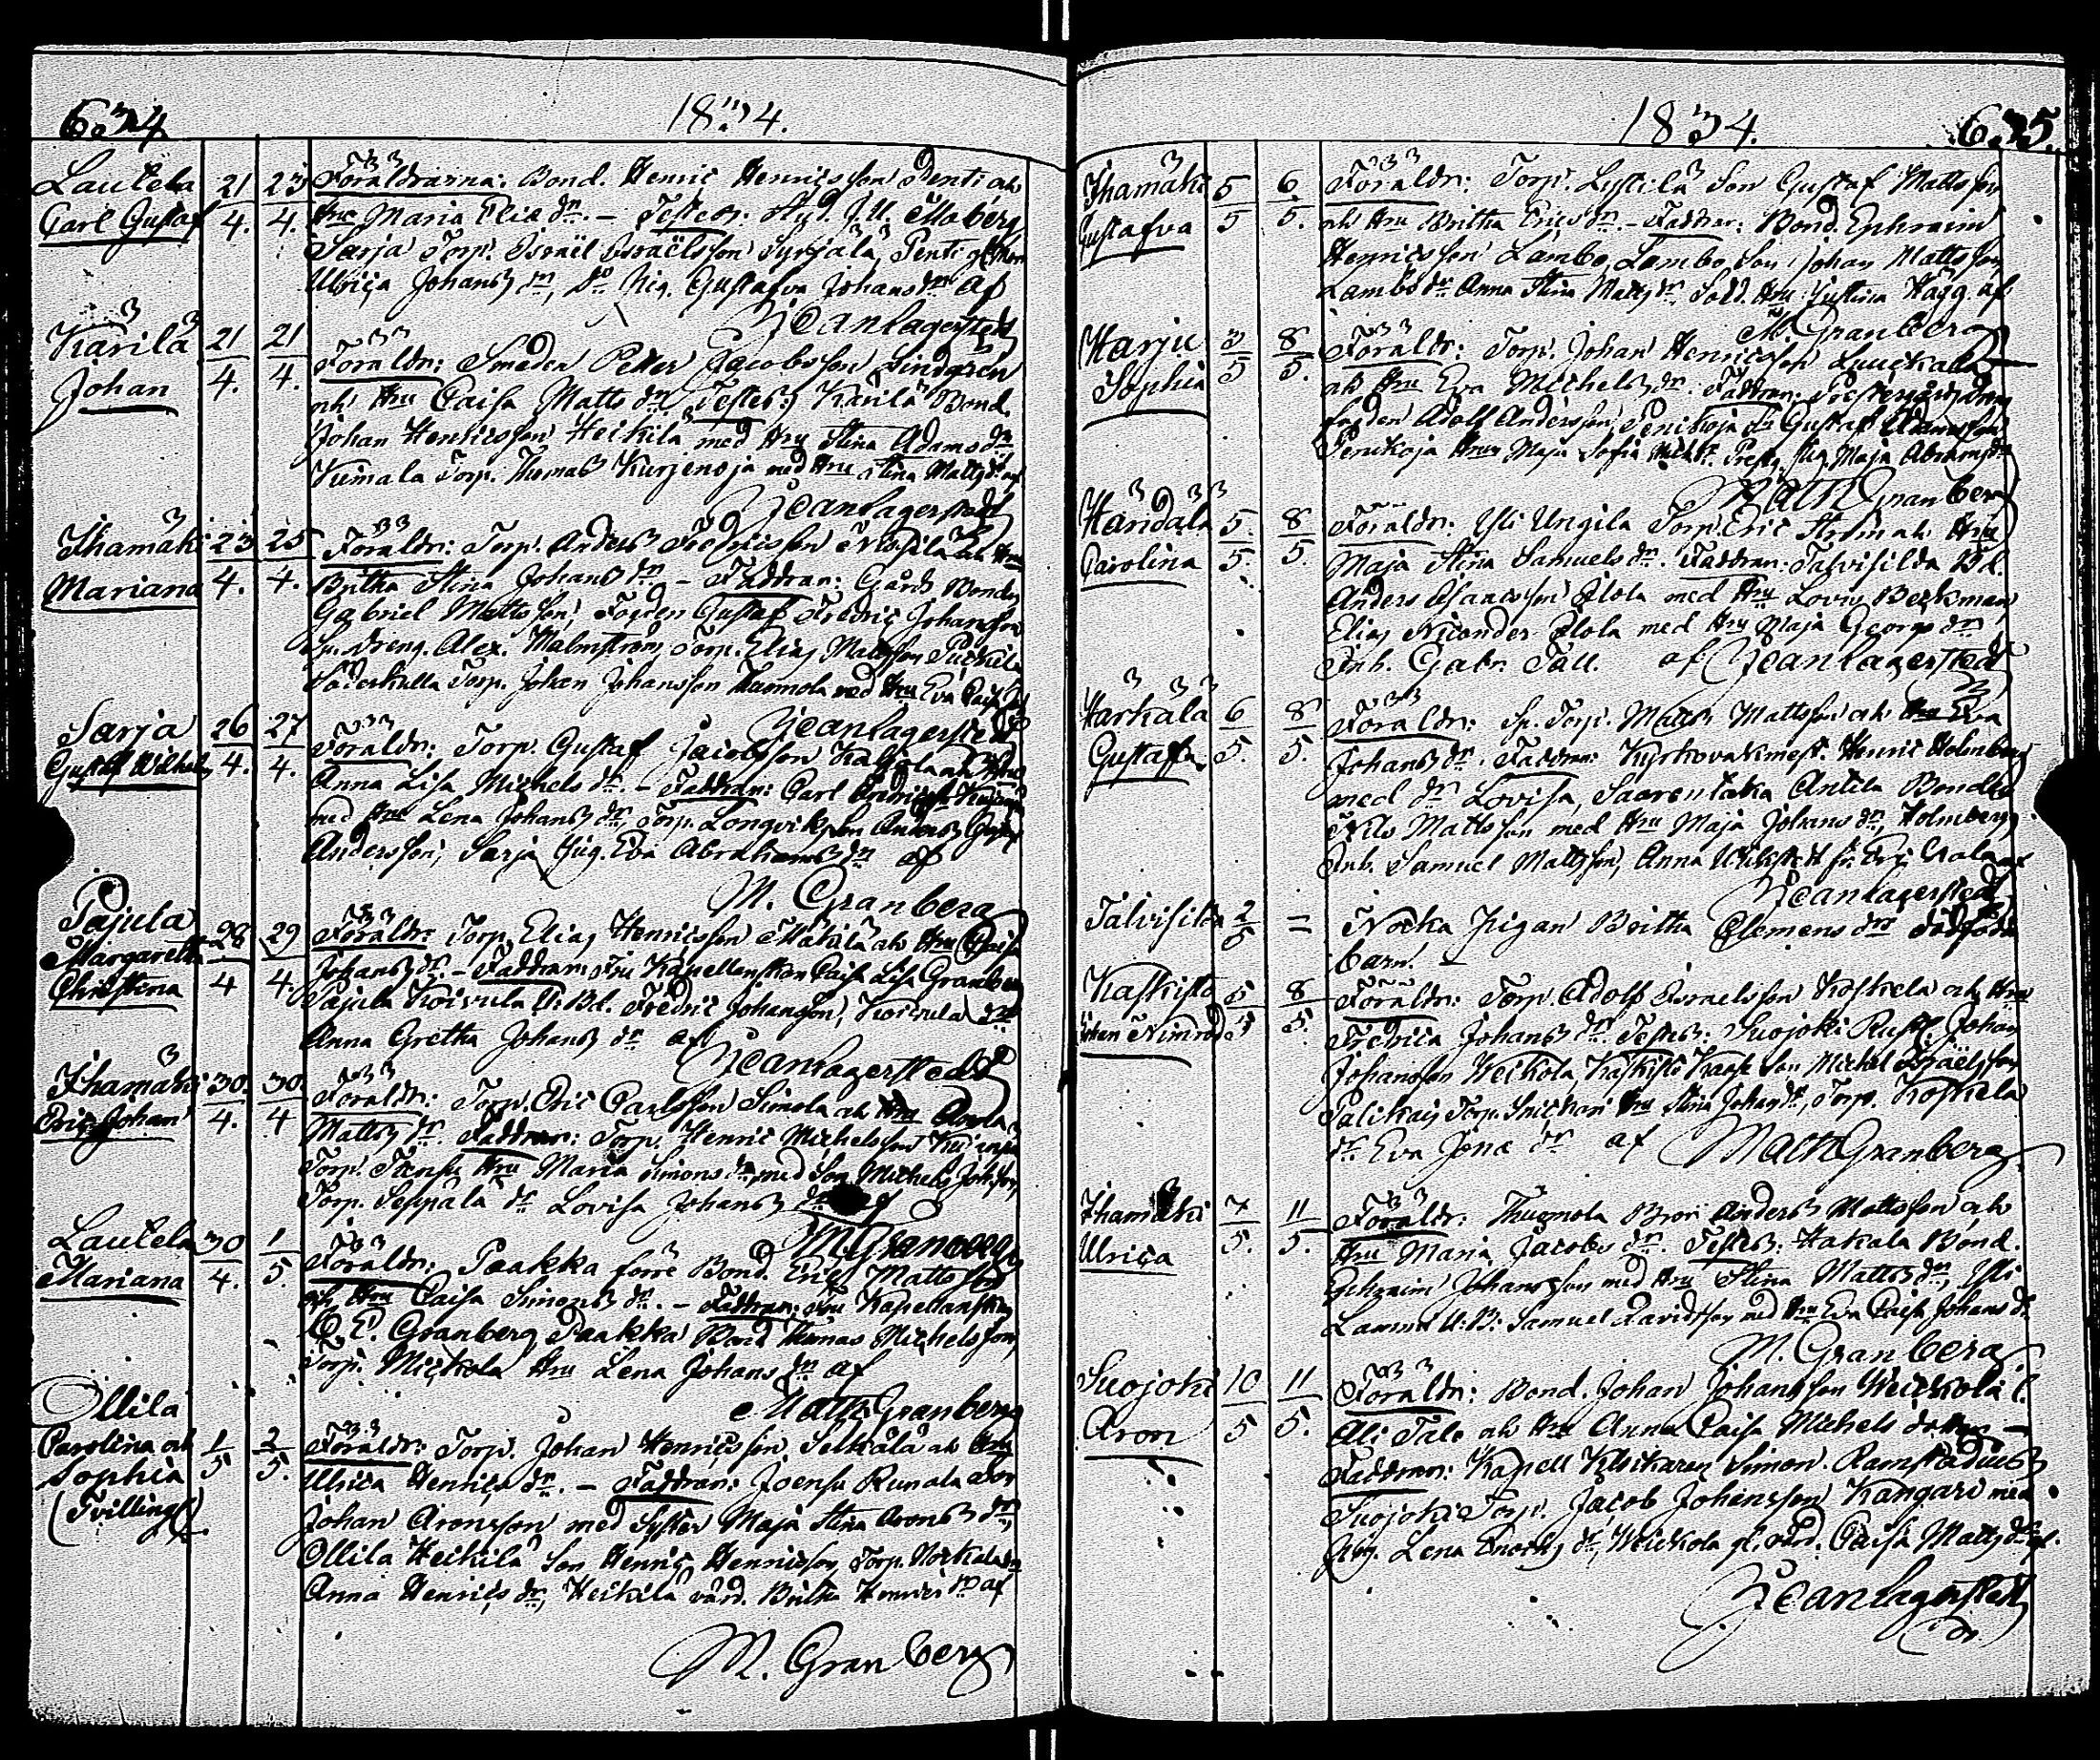 634
1834.
Lautela
Carl Gustaf
21/4.
23/4.
Föräldrarna: Bond. Henric Henricsson Penti och
Hru Maria Eliæ dr. – Testes: Stud. J. U. Moberg
Sarja Torp. Israël Israëlsson Syrjälä, Penti gl. Mor
Ulrica Johans dr, Do Pig. Gustafva Johans dr af
Jean Lagerstedt
Karilä
Johan
21/4.
21/4.
Föräldr: Smeden Petter Jacobsson Lindgren
och Hru Caisa Matts dr, Testes: Karilä Bond.
Johan Henricsson Heikilä med Hru Stina Adams dr
Kumala Torp. Thomas Kurjenoja med Hru Stina Matts dr af
Jean Lagerstedt
Ihamäki
Mariana
23/4.
25/4.
Föräldr: Torp. Anders Fredricsson och Hru
Britha Stina Johans dr – Faddrar: Gårds Bonden
Gabriel Mattsson, Fogden Gustaf Fredric Johansson
Sp. Dreng. Alex. Malmström, Torp. Elias Mattsson
Söderkulla Torp. Johan Johansson Tammola med Hru Eva Caisa
Jean Lagerstedt
Sarja
Gustaf Wilhelm
26/4.
27/4.
Föräldr: Torp. Gustaf Jacobsson och Hru
Anna Lisa Michels dr. – Faddrar: Carl
med Hru Lena Johans dr, Torp. Longvik Son Anders
Andersson, Sarja Pig. Eva Abrahams dr af
M. Granberg
Pajula
Margaretha
Christina
28/4
29/4.
Föräldr: Torp. Elias Henricsson Mäkilä och Hru Caisa
Johans dr. – Faddrar: Fru Kapellanskan Caisa Lisa Granberg
Pajula Koivula U. Bd. Fredric Johansson, Koivula dr
Anna Gretha Johans dr af
Jean Lagerstedt
Ihamäki
Eric Johan
30/4.
30/4
Föräldr: Torp. Eric Carlsson Simola och Hru
Matts dr. Faddrar: Torp. Henric Michelsson
Torp. Hru Maria Simons dr, med Son Michel
Torp. Seppälä dr Lovisa Johans dr af
M. Granberg
Lautela
Mariana
30/4.
1/5.
Föräldr: Paakka förre Bond. Eric Mattsson
och Hru Caisa Simons dr. – Faddrar: Fru Kapellanskan
C. E. Granberg, Paakka Bond Thomas Michelsson,
Torp. Mickola Hru Lena Johans dr af
Matts Granberg
Ollila
Carolina och
Sophia
(Tvillingar)
1/5
2/5.
Föräldr: Torp. Johan Henricsson Seikälä och Hru
Ulrica Henrics dr. – Faddrar: Joensu Runala Son
Johan Aronsson med Syster Maja Stina Arons dr,
Ollila Heikilä Son Henric Henricsson, Torp.
Anna Henrics dr, Heikilä värd. Britha Henrics dr af
M. Granberg
1834.
635.
Ihamäki
Gustafva
5/5
6/5.
Föräldr: Torp. Lystilä Son Gustaf Mattsson
och Hru Britha Erics dr. – Faddrar: Bond. Ephraim
Henricsson Lambo, Lambo Son Johan Mattsson
Lambo dr Anna Stina Matts dr, Sold. Hru Justina Hägg. af
M. Granberg
Harju
Sophia
3/5
8/5.
Föräldr: Torp. Johan Henricsson
och Hru Eva Michels dr. Faddrar:
Adolf Andersson, Penikoja dr Gustaf Adamsson
Penikoja Hru Maja Sofia Prestg. Pig. Maja Abrams dr
Matts Granberg
Handala
Carolina
5/5.
8/5.
Föräldr: Yli Ungila Torp. Eric Ström och Hru
Maja Stina Samuels dr. Faddrar: Talvisilda Bd.
Anders Isaacsson Elola med Hru Lovis Berkman
Elias Nicander Elola med Hru Maja Georgs dr
Inh. Gabr. Tall. af Jean Lagerstedt
Härkälä
Gustafva
6/5.
8/5.
Föräldr: Sp. Torp. Matts Mattsson och Hru Eva
Johans dr. Faddrar: Kyrkovaktmest. Henric Holmberg
med dr Lovisa, Saarentaka Antila Bonden
Nils Mattsson med Hru Maja Johans dr, Holmberg
Inh. Samuel Mattsson, Anna af
Jean Lagerstedt
Talvisilda
2/5
=
Nocka Pigan Britha Clemens drs dödfödda
barn.
Kaskisto
Johan Nimrod
5/5
8/5.
Föräldr: Torp. Adolf Israelsson Koskela och Hru
Fredrica Johans dr. Testes: Suojoki Rust. Johan
Johansson Weikola, Kaskisto Son Michel Israëlsson
Torp. Snickari Hru Stina Johans dr, Torp. Koskela
dr Eva Jonæ dr af Matts Granberg
Ihamäki
Ulrica
7/5.
11/5.
Föräldr: Bror Anders Mattsson och
Hru Maria Jacobs dr. Testes: Hakala Bond.
Ephraim Johansson med Hru Stina Matts dr, Yli
Lammi U. B. Samuel Davidsson med Hru Eva Caisa Johans dr.
M. Granberg
Suojoki
Aron
10/5
11/5.
Föräldr: Bond. Johan Johansson Weickola l.
Ali Talo och Hru Anna Caisa Michels dotter –
Faddrar: Kapell Klockaren Simon Ramstadius
Suojoki Torp. Jacob Johansson Kangari med
Hru. Lena Enochs dr, Weickola gl. värd. Caisa Matts dr af.
Jean Lagerstedt